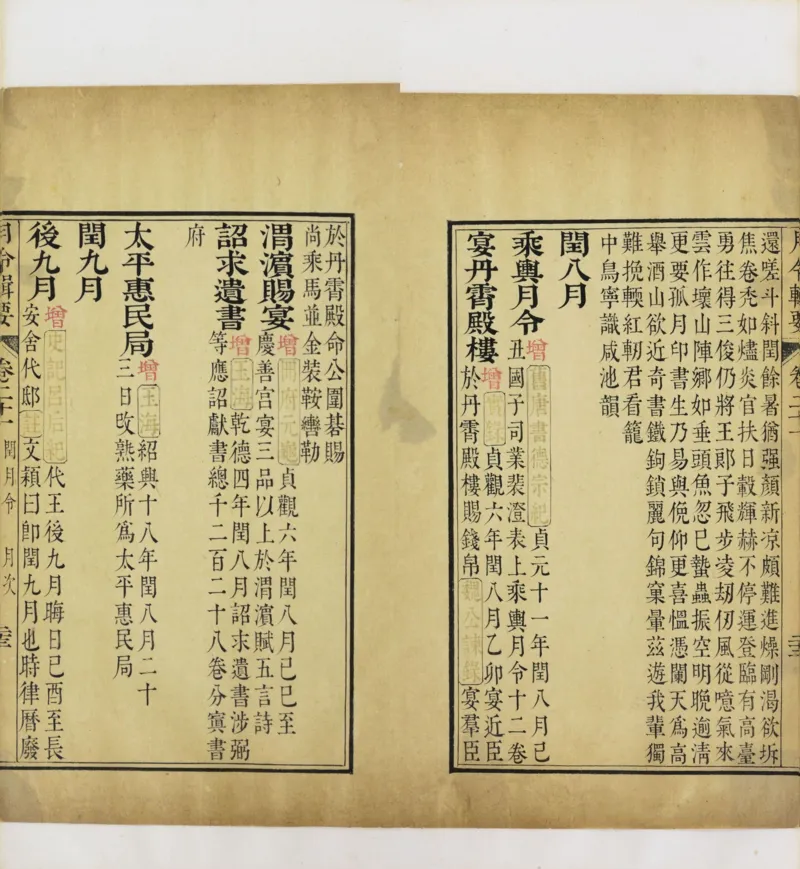 月令輯要 卷二十一
還嗟斗斜閏餘暑猶强顏新凉頗難進燥剛渴欲坼
焦卷禿如燼炎官扶日轂輝赫不停運登臨有高臺
勇往得三俊仍將王郞子飛步凌刧仞風從噫氣來
雲作壞山陣鄉如垂頭魚忽巳蟄蟲振空明晚逾淸
更要孤月印書生乃易與俛仰更喜慍憑闌天爲高
舉酒山欲近奇書鐵鉤鎖麗句錦窠暈茲遊我輩獨
難挽輭紅軔君看籠
中鳥寧識咸池韻
閏八月
乘輿月令 增 舊唐書德宗紀 貞元十一年閏八月己
丑國子司業裴澄表上乘輿月令十二卷
宴丹霄殿樓 增 貞觀六年閏八月乙卯宴近臣
於丹霄殿樓賜錢帛 魏公諫錄 宴羣臣
於丹霄殿命公圍碁賜
尚乘馬並金裝鞍轡勒
渭濱賜宴 增 冊府元龜 貞觀六年閏八月己巳至
慶善宫宴三品以上於渭濱賦五言詩
詔求遺書 增 玉海 乾德四年閏八月詔求遺書涉弼
等應詔獻書總千二百二十八卷分寘書
府
太平惠民局 增 玉海 紹興十八年閏八月二十
三日改熟藥所爲太平惠民局
閏九月
後九月 增 代王後九月晦日己酉至長
安舍代邸 註 文穎曰卽閏九月也時律曆廢
月令輯要 卷二十一 閏月令 月次